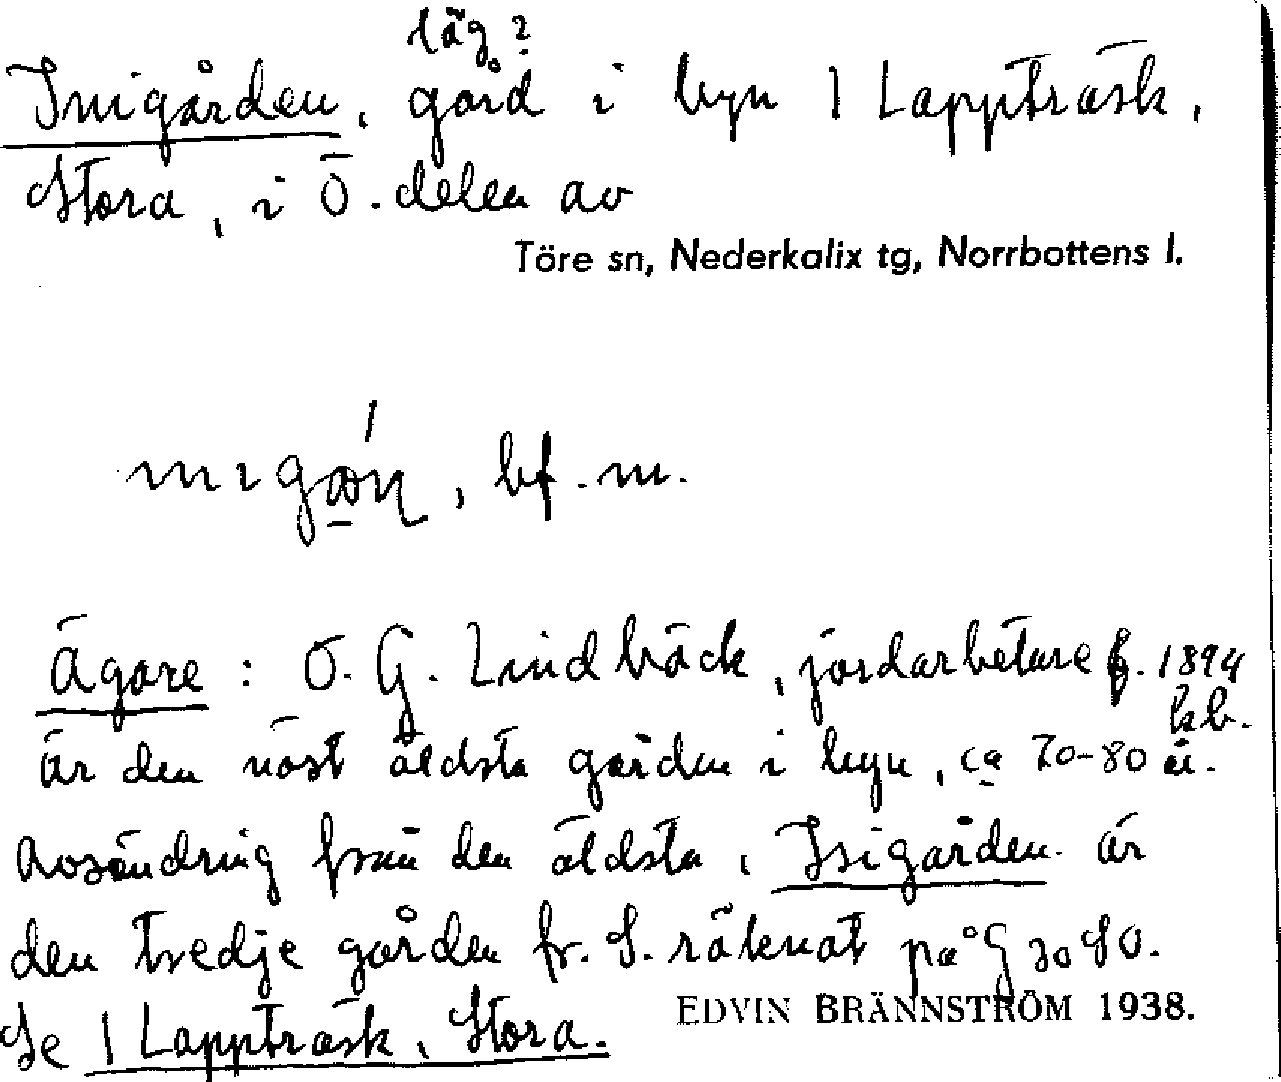 läg?
Inigården, gård i byn 1 Lappträsk,
Stora, i Ö. delen av
Töre sn, Nederkalix tg, Norrbottens l.
bf. m.
Ägare: O. G. Lindbäck, jordarbetare f. 1894
kb.
är den näst äldsta gården i byn, ca 70-80 år.
Avsöndring från den äldsta, Isigården. är
den tredje gården fr. S. räknat på G 30 SO.
Se 1 Lappträsk, Stora.
EDVIN BRÄNNSTRÖM 1938.